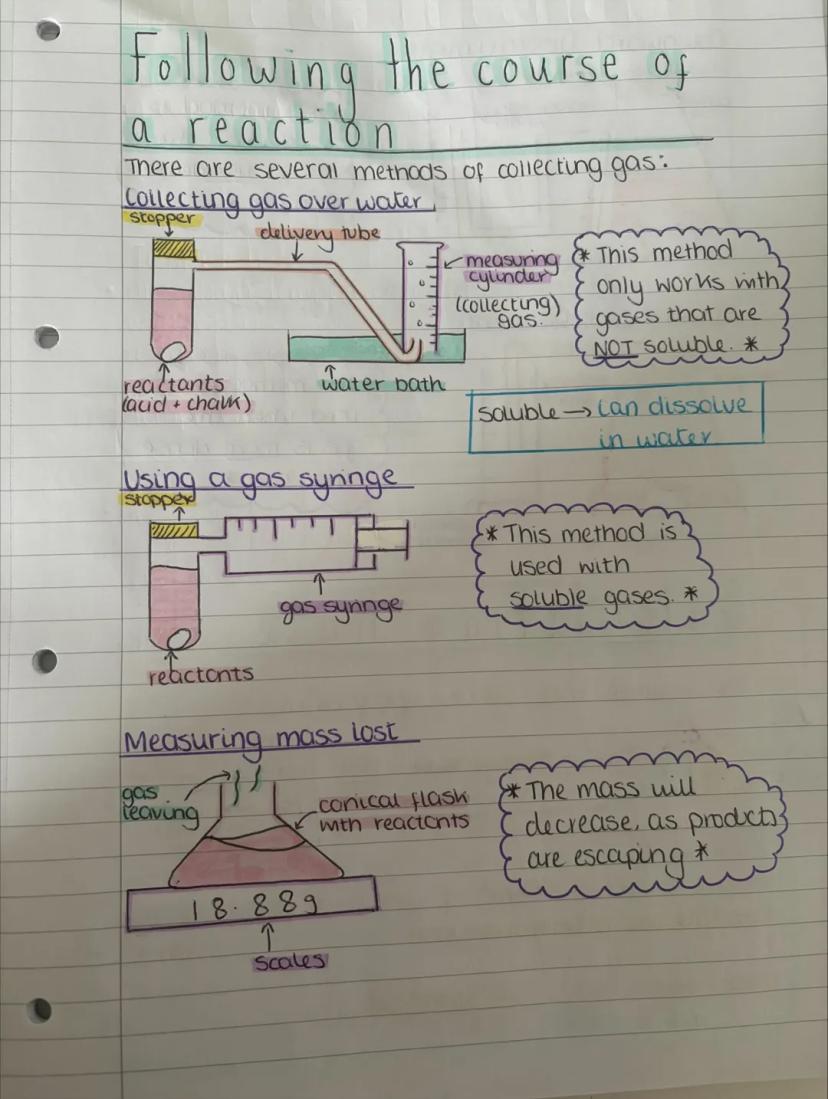 Following the course of
a reaction
There are several methods of collecting gas:
Collecting gas over water
stopper
delivery tube
measuring
cylinder
(collecting)
gas.
* This method
only works with
gases that are
NOT soluble. *
reactants
(acid + chalk)
water bath
soluble → can dissolve
in water
Using a gas syringe
stopper
gas syringe
reactants
* This method is
used with
soluble gases. *
Measuring mass lost
gas
leaving
conical flask
with reactants
* The mass will
decrease, as products
are escaping *
18.88g
scales